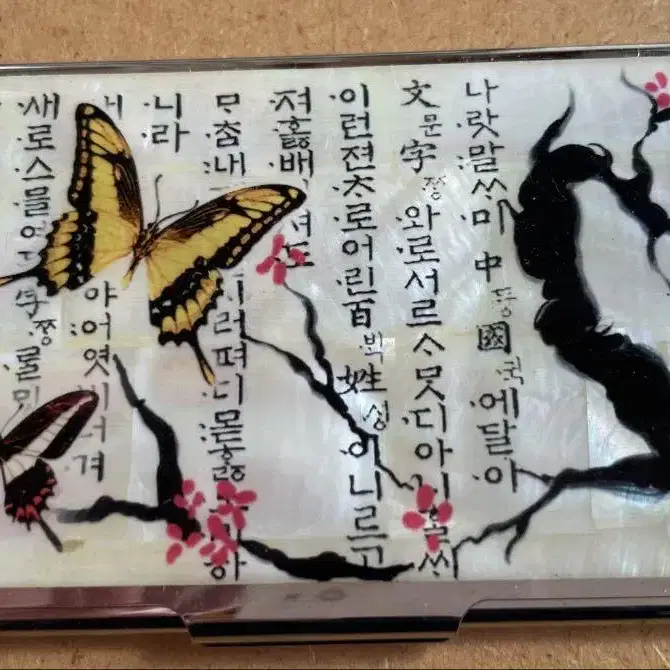 나랏말ᄊᆞ미中듕國귁에달아
文문字ᄍᆞᆼ와로서르ᄉᆞᄆᆞᆺ디아니ᄒᆞᆯᄊᆡ
이런젼ᄎᆞ로어린百ᄇᆡᆨ姓셩이니르고
져ᄒᆞᇙ배 셔도
ᄆᆞᄎᆞᆷ내 러펴디몯ᄒᆞᇙ 하
니라
내 야어엿비너겨
새로스믈 字ᄍᆞᆼᄅᆞᆯ